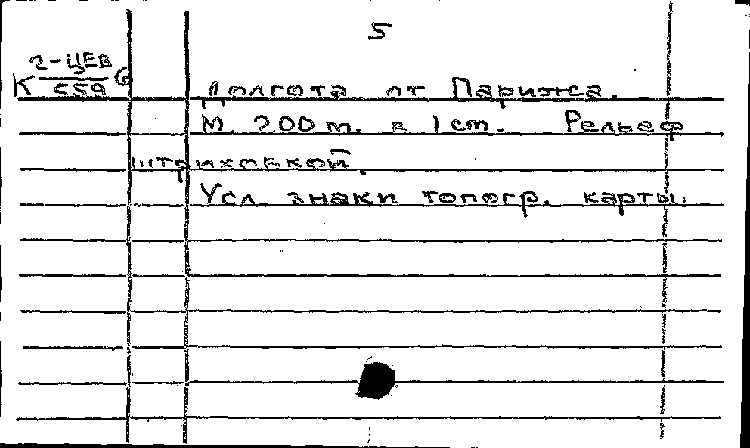 5
К 2-ЦЕВ/559 6
Долгота от Парижа.
М. 200 m. в 1 cm. Рельеф
штриховкой.
Усл. знаки топогр. карты.